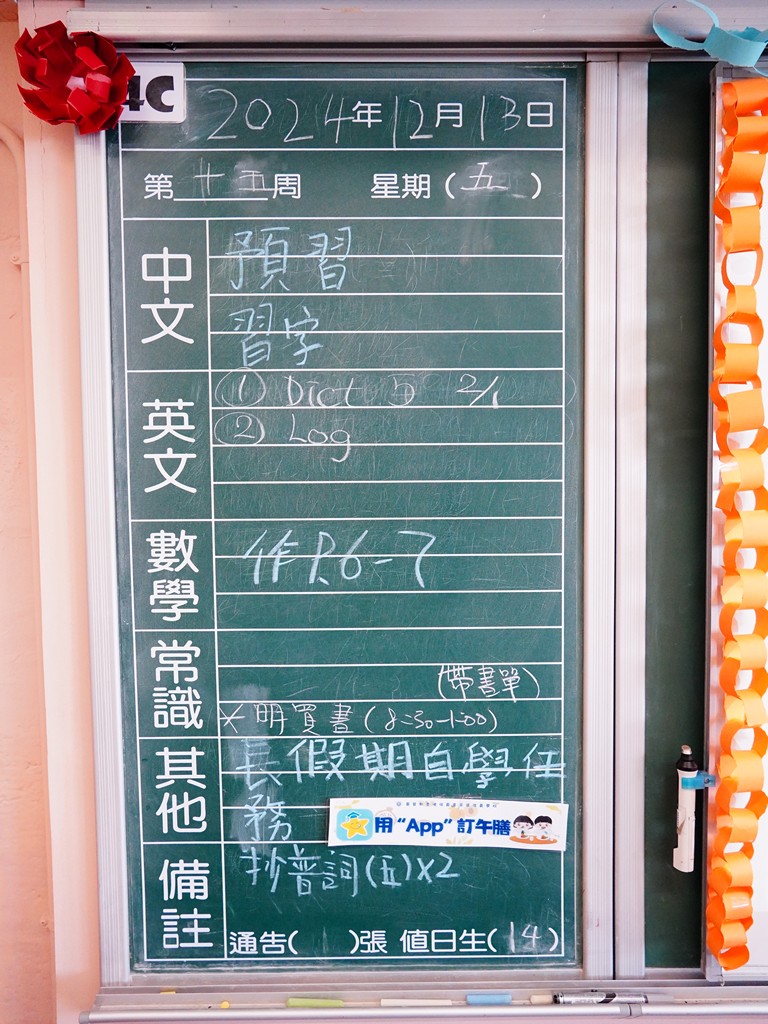 4C
2024年12月13日
第十五周 星期(五)
中文
預習
習字
英文
① Dict 5 2/1
② Log
數學
作P.6-7
常識
(帶書單)
*明買書(8:30-1:00)
其他
長假期自學任
務
用“App”訂午膳
備註
抄普詞(五)x2
通告( )張 值日生(14)